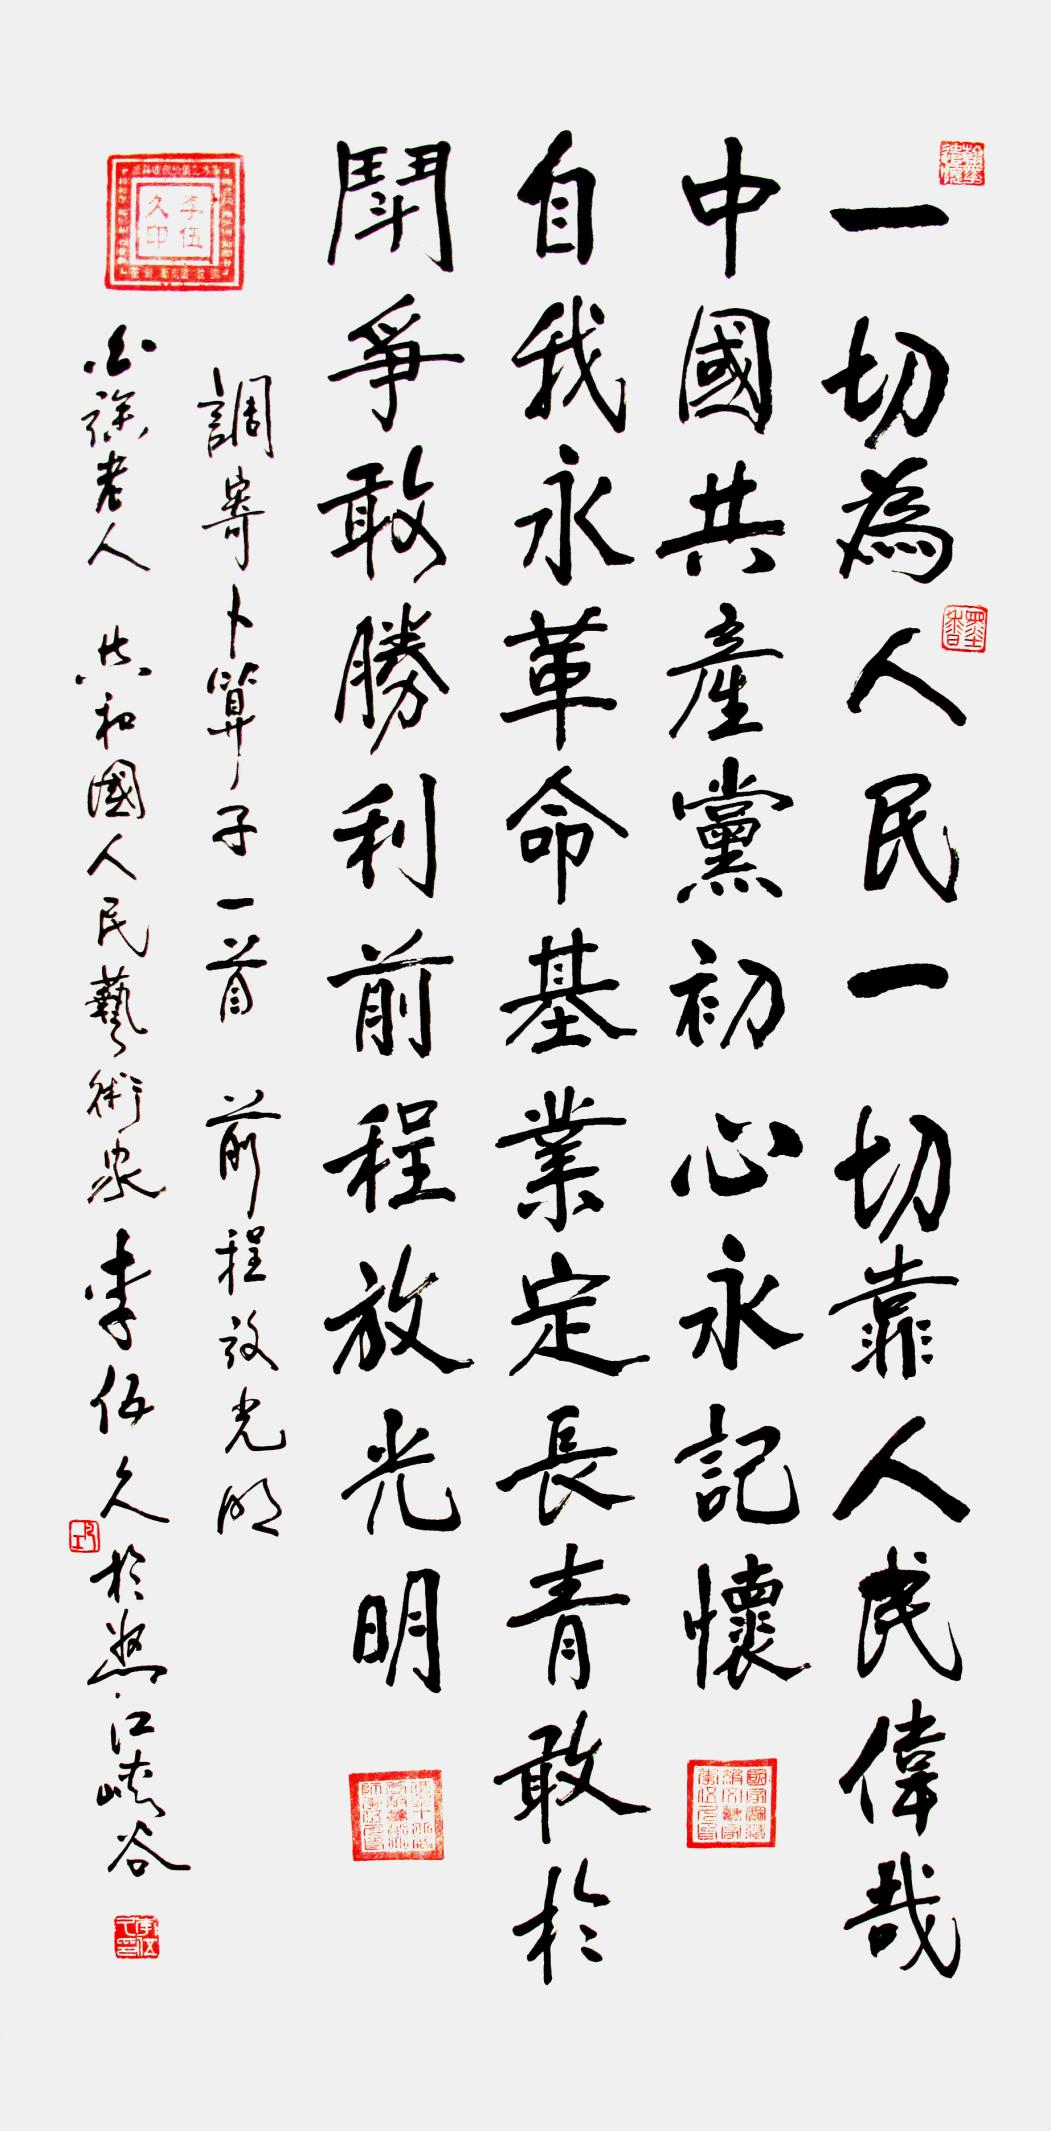 一切為人民一切靠人民偉哉
中國共產黨初心永記懷
自我永革命基業定長青敢於
鬥爭敢勝利前程放光明
調寄卜算子一首 前程放光明
老人 共和國人民藝術家李伍久於怒江峽谷
李伍久印